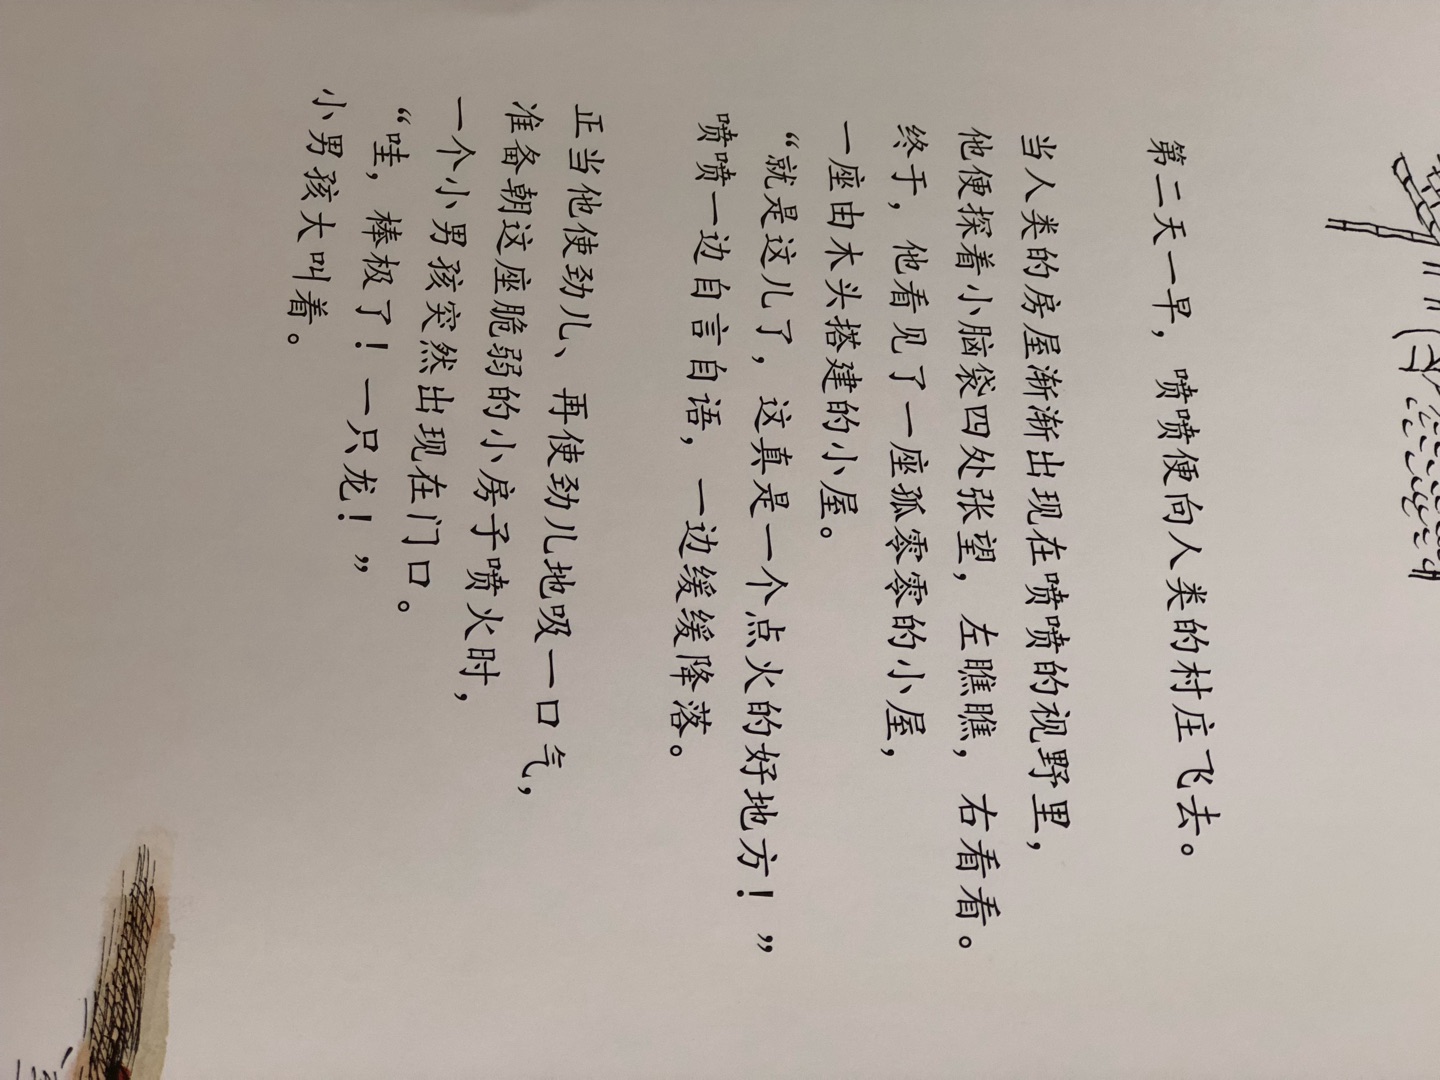 第二天一早，喷喷便向人类的村庄飞去。
当人类的房屋渐渐出现在喷喷的视野里，
他便探着小脑袋四处张望，左瞧瞧，右看看。
终于，他看见了一座孤零零的小屋，
一座由木头搭建的小屋。
“就是这儿了，这真是一个点火的好地方！”
喷喷一边自言自语，一边缓缓降落。
正当他使劲儿、再使劲儿地吸一口气，
准备朝这座脆弱的小房子喷火时，
一个小男孩突然出现在门口。
“哇，棒极了！一只龙！”
小男孩大叫着。